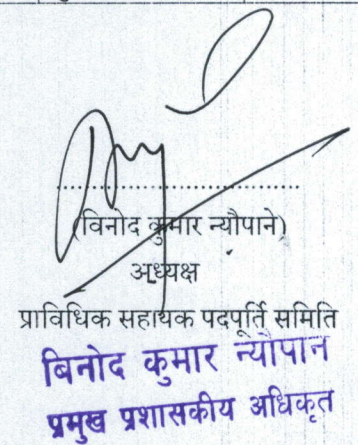 (विनोद कुमार न्यौपाने)
अध्यक्ष
प्राविधिक सहायक पदपूर्ति समिति
बिनोद कुमार न्यौपाने
प्रमुख प्रशासकीय अधिकृत